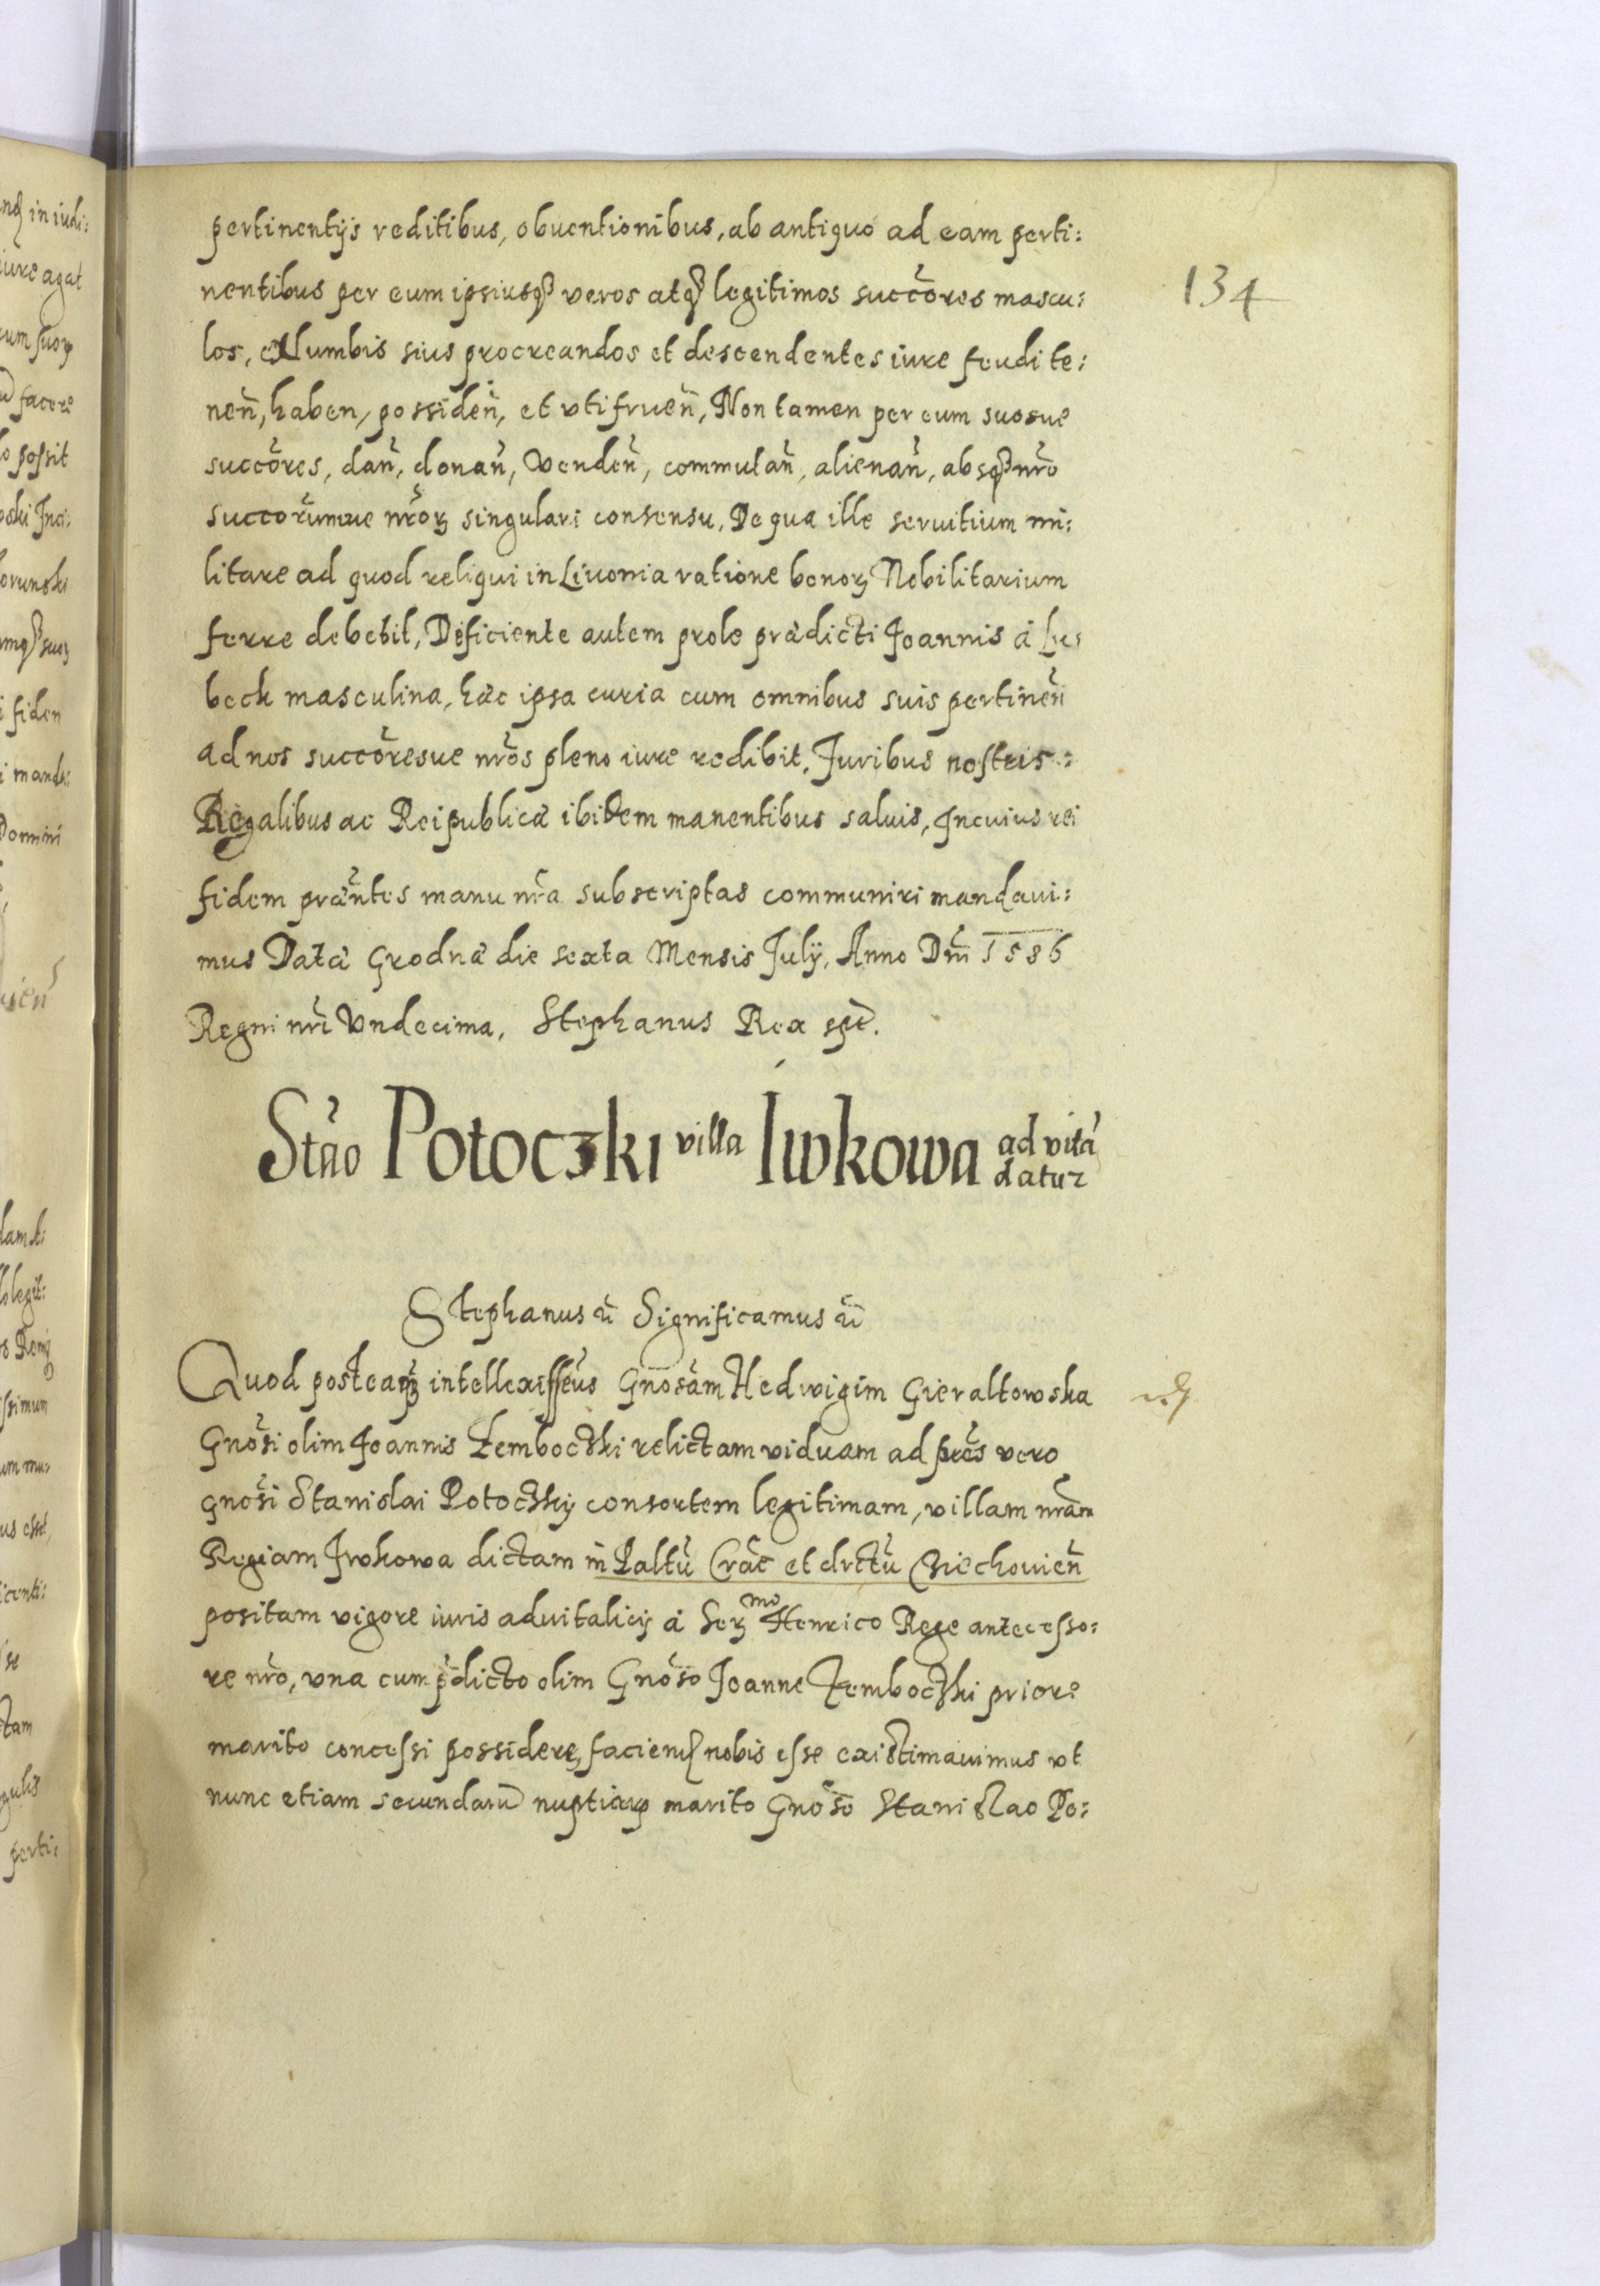 134
pertinentijs reditibus, obuentionibus, ab antiquo ad eam perti:
nentibus per eum ipsiusqꝫ veros atqꝫ legitimos succo͂res mascu:
los, ex lumbis sius procreandos et descendentes iure feudi te:
nen͂, haben, possiden͂, et vtifruen͂, Non tamen per eum suosue
succo͂res, dan͂, donan͂, Venden͂, commutan͂, alienan͂, absqꝫ nr͂o
succoru͂mue nr͂oꝝ singulari consensu, De qua ille seruitium mi:
litare ad quod reliqui in Liuonia ratione bonoꝝ Nobilitarium
ferre debebit, Deficiente autem prole prædicti Joannis á Lu:
beck masculina, hæc ipsa curia cum omnibus suis pertinen͂
ad nos succo͂resue nr͂os pleno iure redibit, Juribus nostris:
Regalibus ac Reipublicæ ibidem manentibus saluis, In cuius rei
fidem præn͂tes manu nr͂a subscriptas communiri mandaui:
mus Datæ Grodnæ die sexta Mensis Julÿ, Anno Dn͂i 1586
Regni nr͂i Vndecima, Stephanus Rex sp͂t.
Stn͂o Potoczki villa Iwkowa ad vitã
datur
Stephanus &c͂ Significamus &c͂
Quod posteaqꝫ intellexissem͂us Gnosa͂m Hedwigim Gieraltowska
Gno͂si olim Joannis Zemboczki relictam viduam ad pre͂s vero
gno͂si Stanislai Potoczkÿ consortem legitimam, villam nr͂am
Regiam Iwkowa dictam in Paltu͂ Cra͂c et drctu͂ Cziechouien͂
positam vigore iuris aduitalicÿ á Serꝫmo Henrico Rege antecesso:
re nr͂o, vna cum p͂dicto olim Gno͂so Joanne Zemboczki priore
marito concessi possidere, faciend nobis esse existimauimus vt
nunc etiam secundaru͂ nuptiaꝝ marito Gno͂so Stanislao Po: